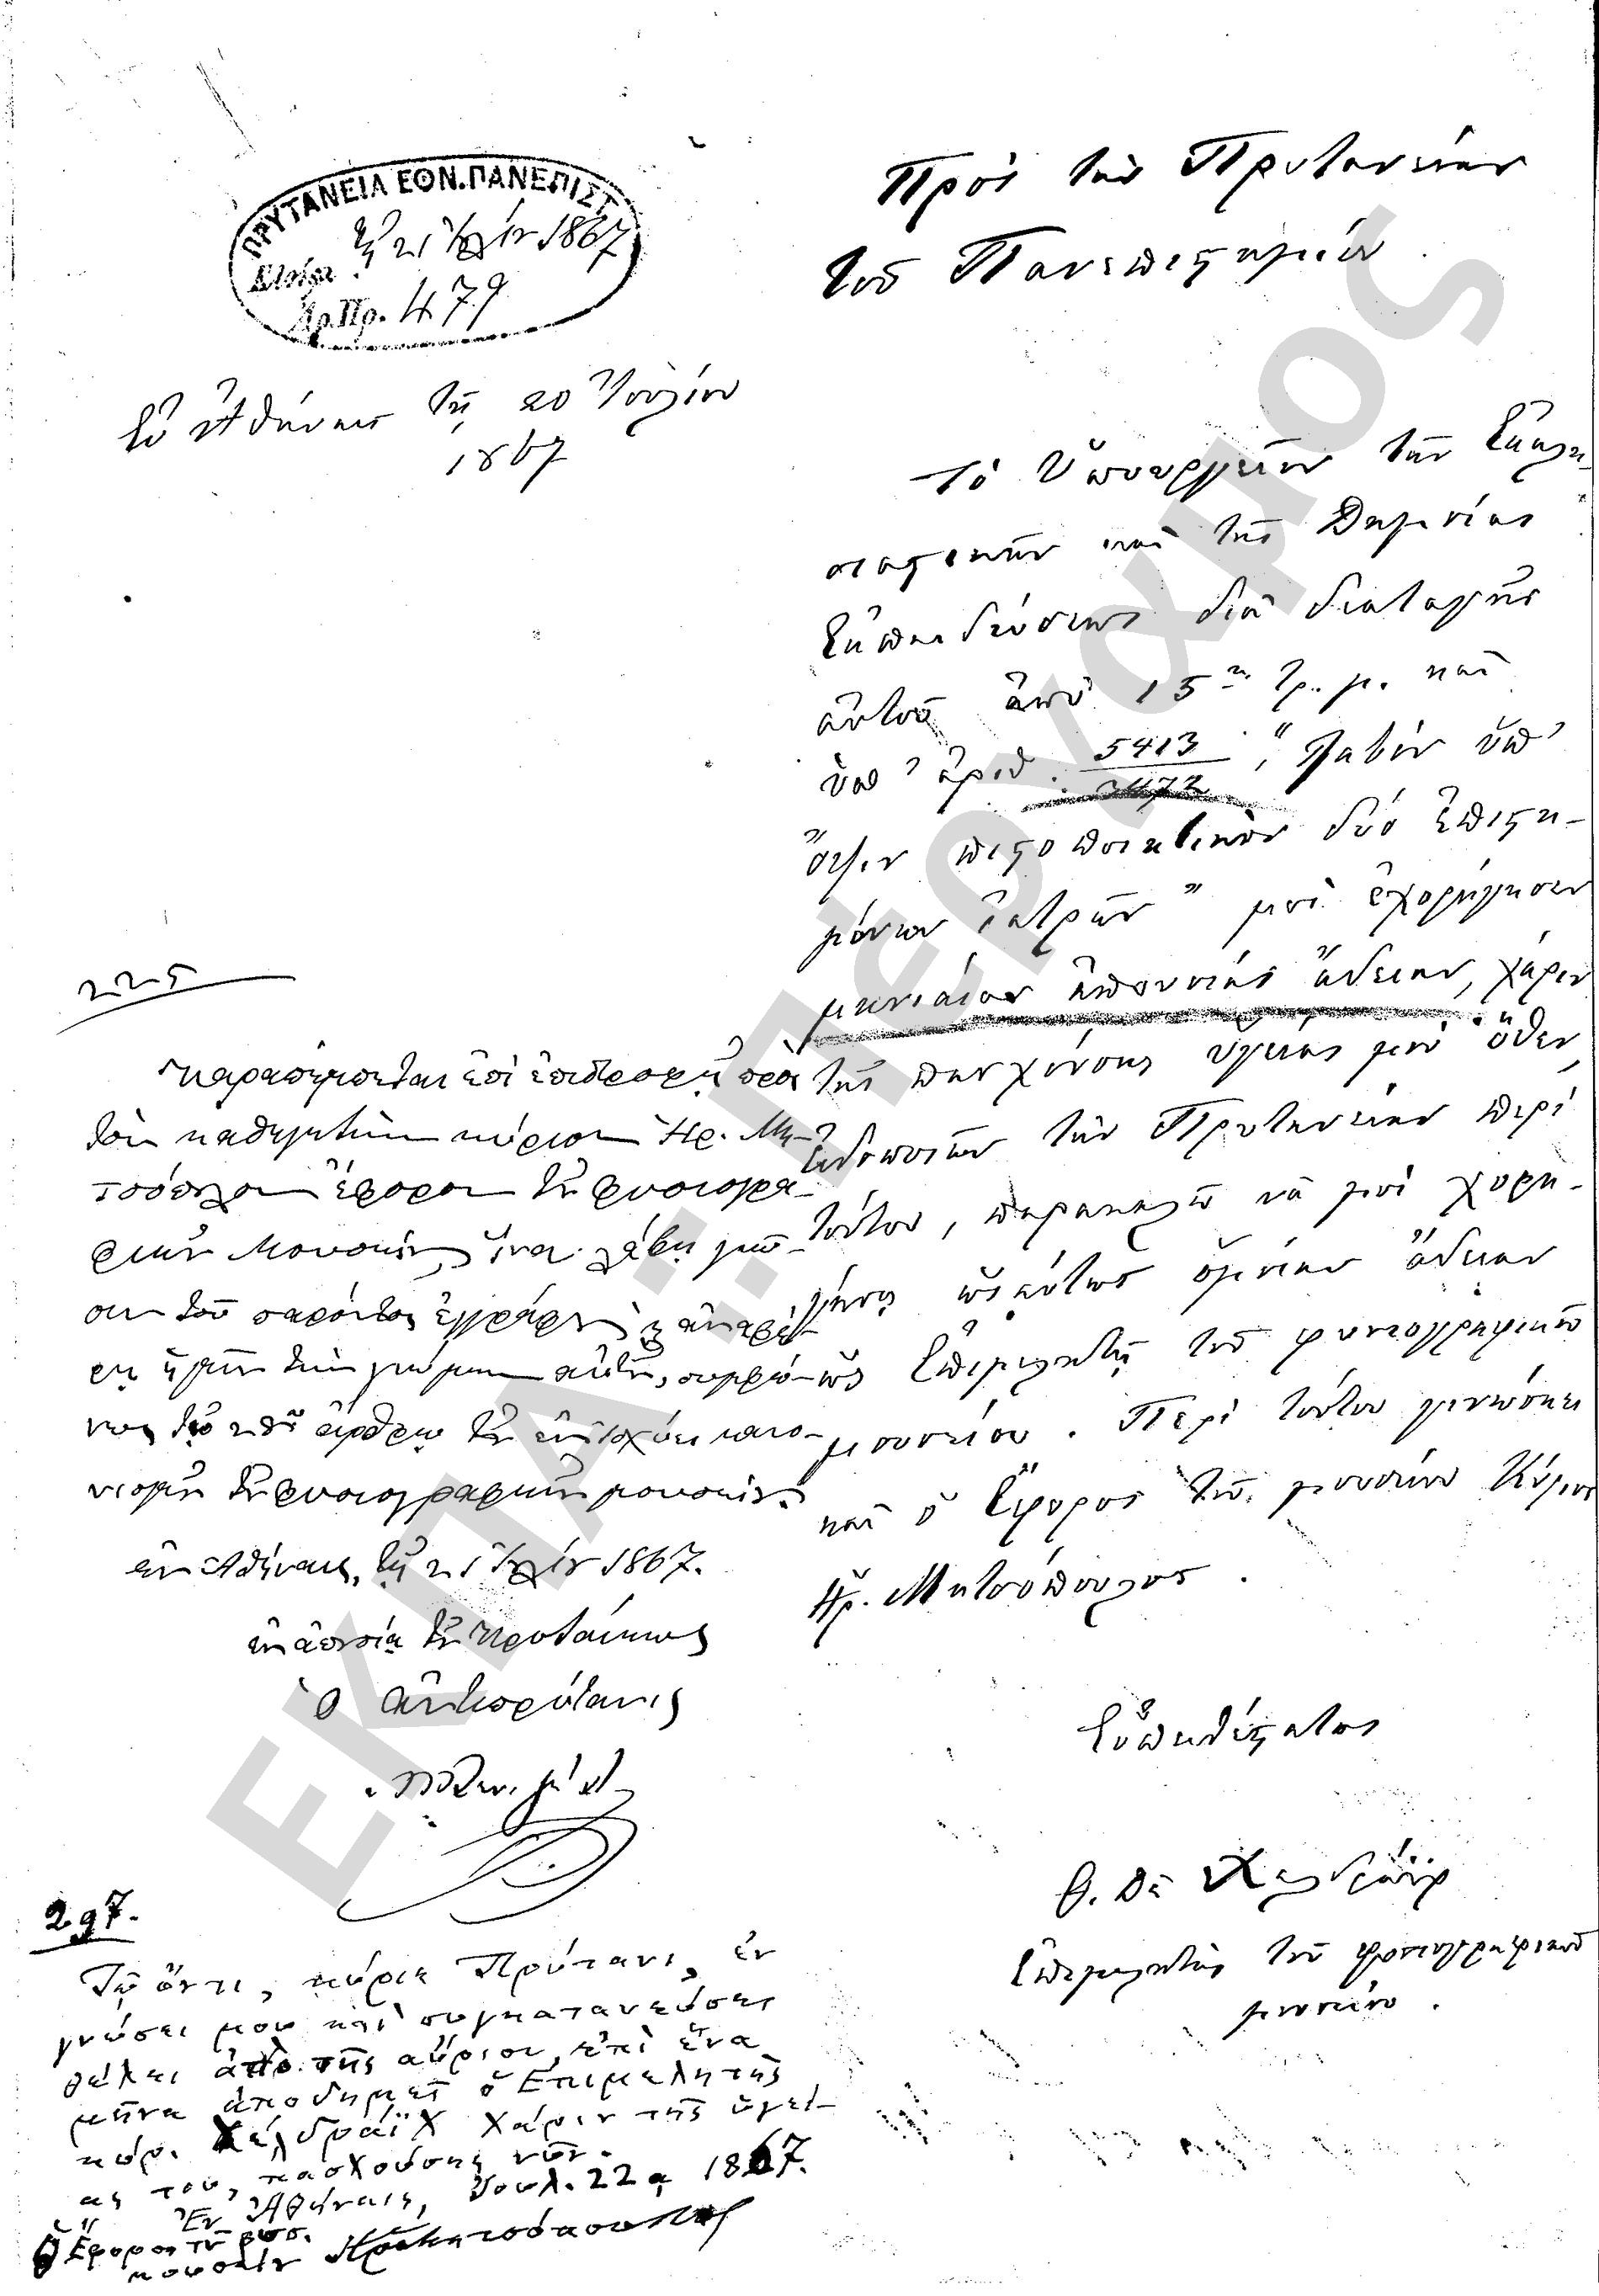 ΠΡΥΤΑΝΕΙΑ ΕΘΝ. ΠΑΝΕΠΙΣΤ.
τῇ 21 Ἰουλίου 1867
Ἀρ. Πρ. 479
Ἐν Ἀθήναις τῇ 20 Ἰουλίου
1867
Πρὸς τὴν Πρυτανείαν
τοῦ Πανεπιστημίου
Τὸ Ὑπουργεῖον τῶν Ἐκκλη-
σιαστικῶν καὶ τῆς Δημοσίας
Ἐκπαιδεύσεως διὰ διαταγῆς
αὐτοῦ ἀπὸ 15ης τρ. μ. καὶ
ὑπ' ἀριθ. 5413/3472, „λαβὸν ὑπ'
ὄψιν πιστοποιητικὸν δύο ἐπιστη-
μόνων ἰατρῶν” μοὶ ἐχορήγησεν
μηνιαίαν ἀπουσίας ἄδειαν, χάριν
τῆς πασχούσης ὑγείας μου ὅθεν,
εἰδοποιῶν τὴν Πρυτανείαν περὶ
τούτου, παρακαλῶ νὰ μοὶ χορη-
γήσῃ ὡσαύτως ὁμοίαν ἄδειαν
ὡς Ἐπιμελητῇ τοῦ φυσιογραφικοῦ
μουσείου. Περὶ τούτου γινώσκει
καὶ ὁ Ἔφορος τοῦ μουσείου Κύριος
Ἡρ. Μητσόπουλος.
Εὐπειθέστατος
Θ. Δὲ Χελδράϊχ
Ἐπιμελητὴς τοῦ φυσιογραφικοῦ
μουσείου.
225
Παραπέμπεται ἐπὶ ἐπιστροφῇ πρὸς
τὸν καθηγητὴν κύριον Ἡρ. Μη-
τσόπουλον ἔφορον τοῦ φυσιογρα-
φικοῦ Μουσείου, ἵνα λάβῃ γνῶ-
σιν τοῦ παρόντος ἐγγράφου καὶ ἀναφέ-
ρῃ ἡμῖν τὴν γνώμην αὐτοῦ, συμφώ-
νως τῷ ἄρθρῳ τοῦ ἐν ἰσχύει κανο-
νισμοῦ τοῦ φυσιογραφικοῦ μουσείου.
ἐν Ἀθήναις, τῇ 21 Ἰουλίου 1867.
ἐν ἀπουσίᾳ τοῦ Πρυτάνεως
ὁ ἀντιπρύτανις
297.
Τῷ ὄντι, κύριε Πρύτανι, ἐν
γνώσει μου καὶ συγκατανεύσει
θέλει ἀπὸ τῆς αὔριον, ἐπὶ ἕνα
μῆνα ἀποδημεῖ ὁ Ἐπιμελητὴς
κύρ. Χέλδραϊχ χάριν τῆς ὑγεί-
ας του, πασχούσης νῦν.
Ἐν Ἀθήναις, Ἰουλ. 22ᾳ 1867.
Ὁ Ἔφορος τοῦ φυσ.
μουσείου Ἡρ. Μητσόπουλος